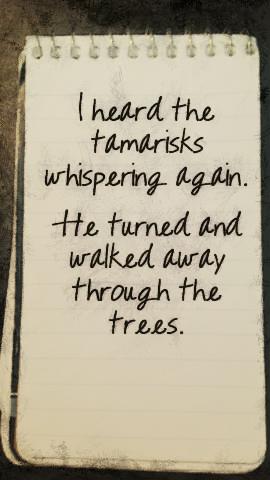 I heard the
tamarisks
whispering again.
He turned and
walked away
through the
trees.